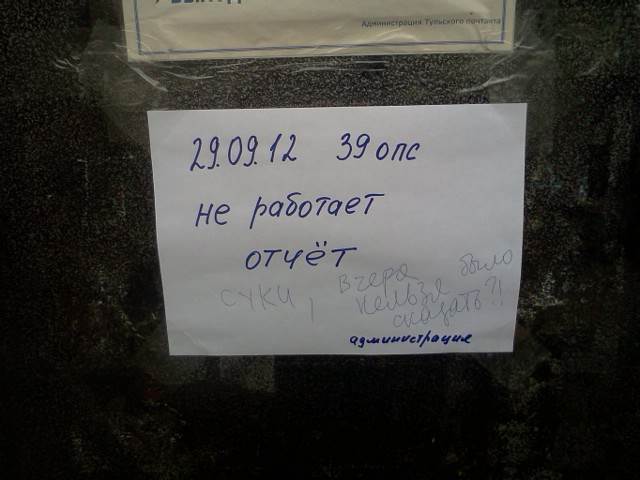 Администрация Тульского почтамта
29.09.12 39 опс
не работает
отчёт
суки, вчера нельзя было сказать?!
администрация